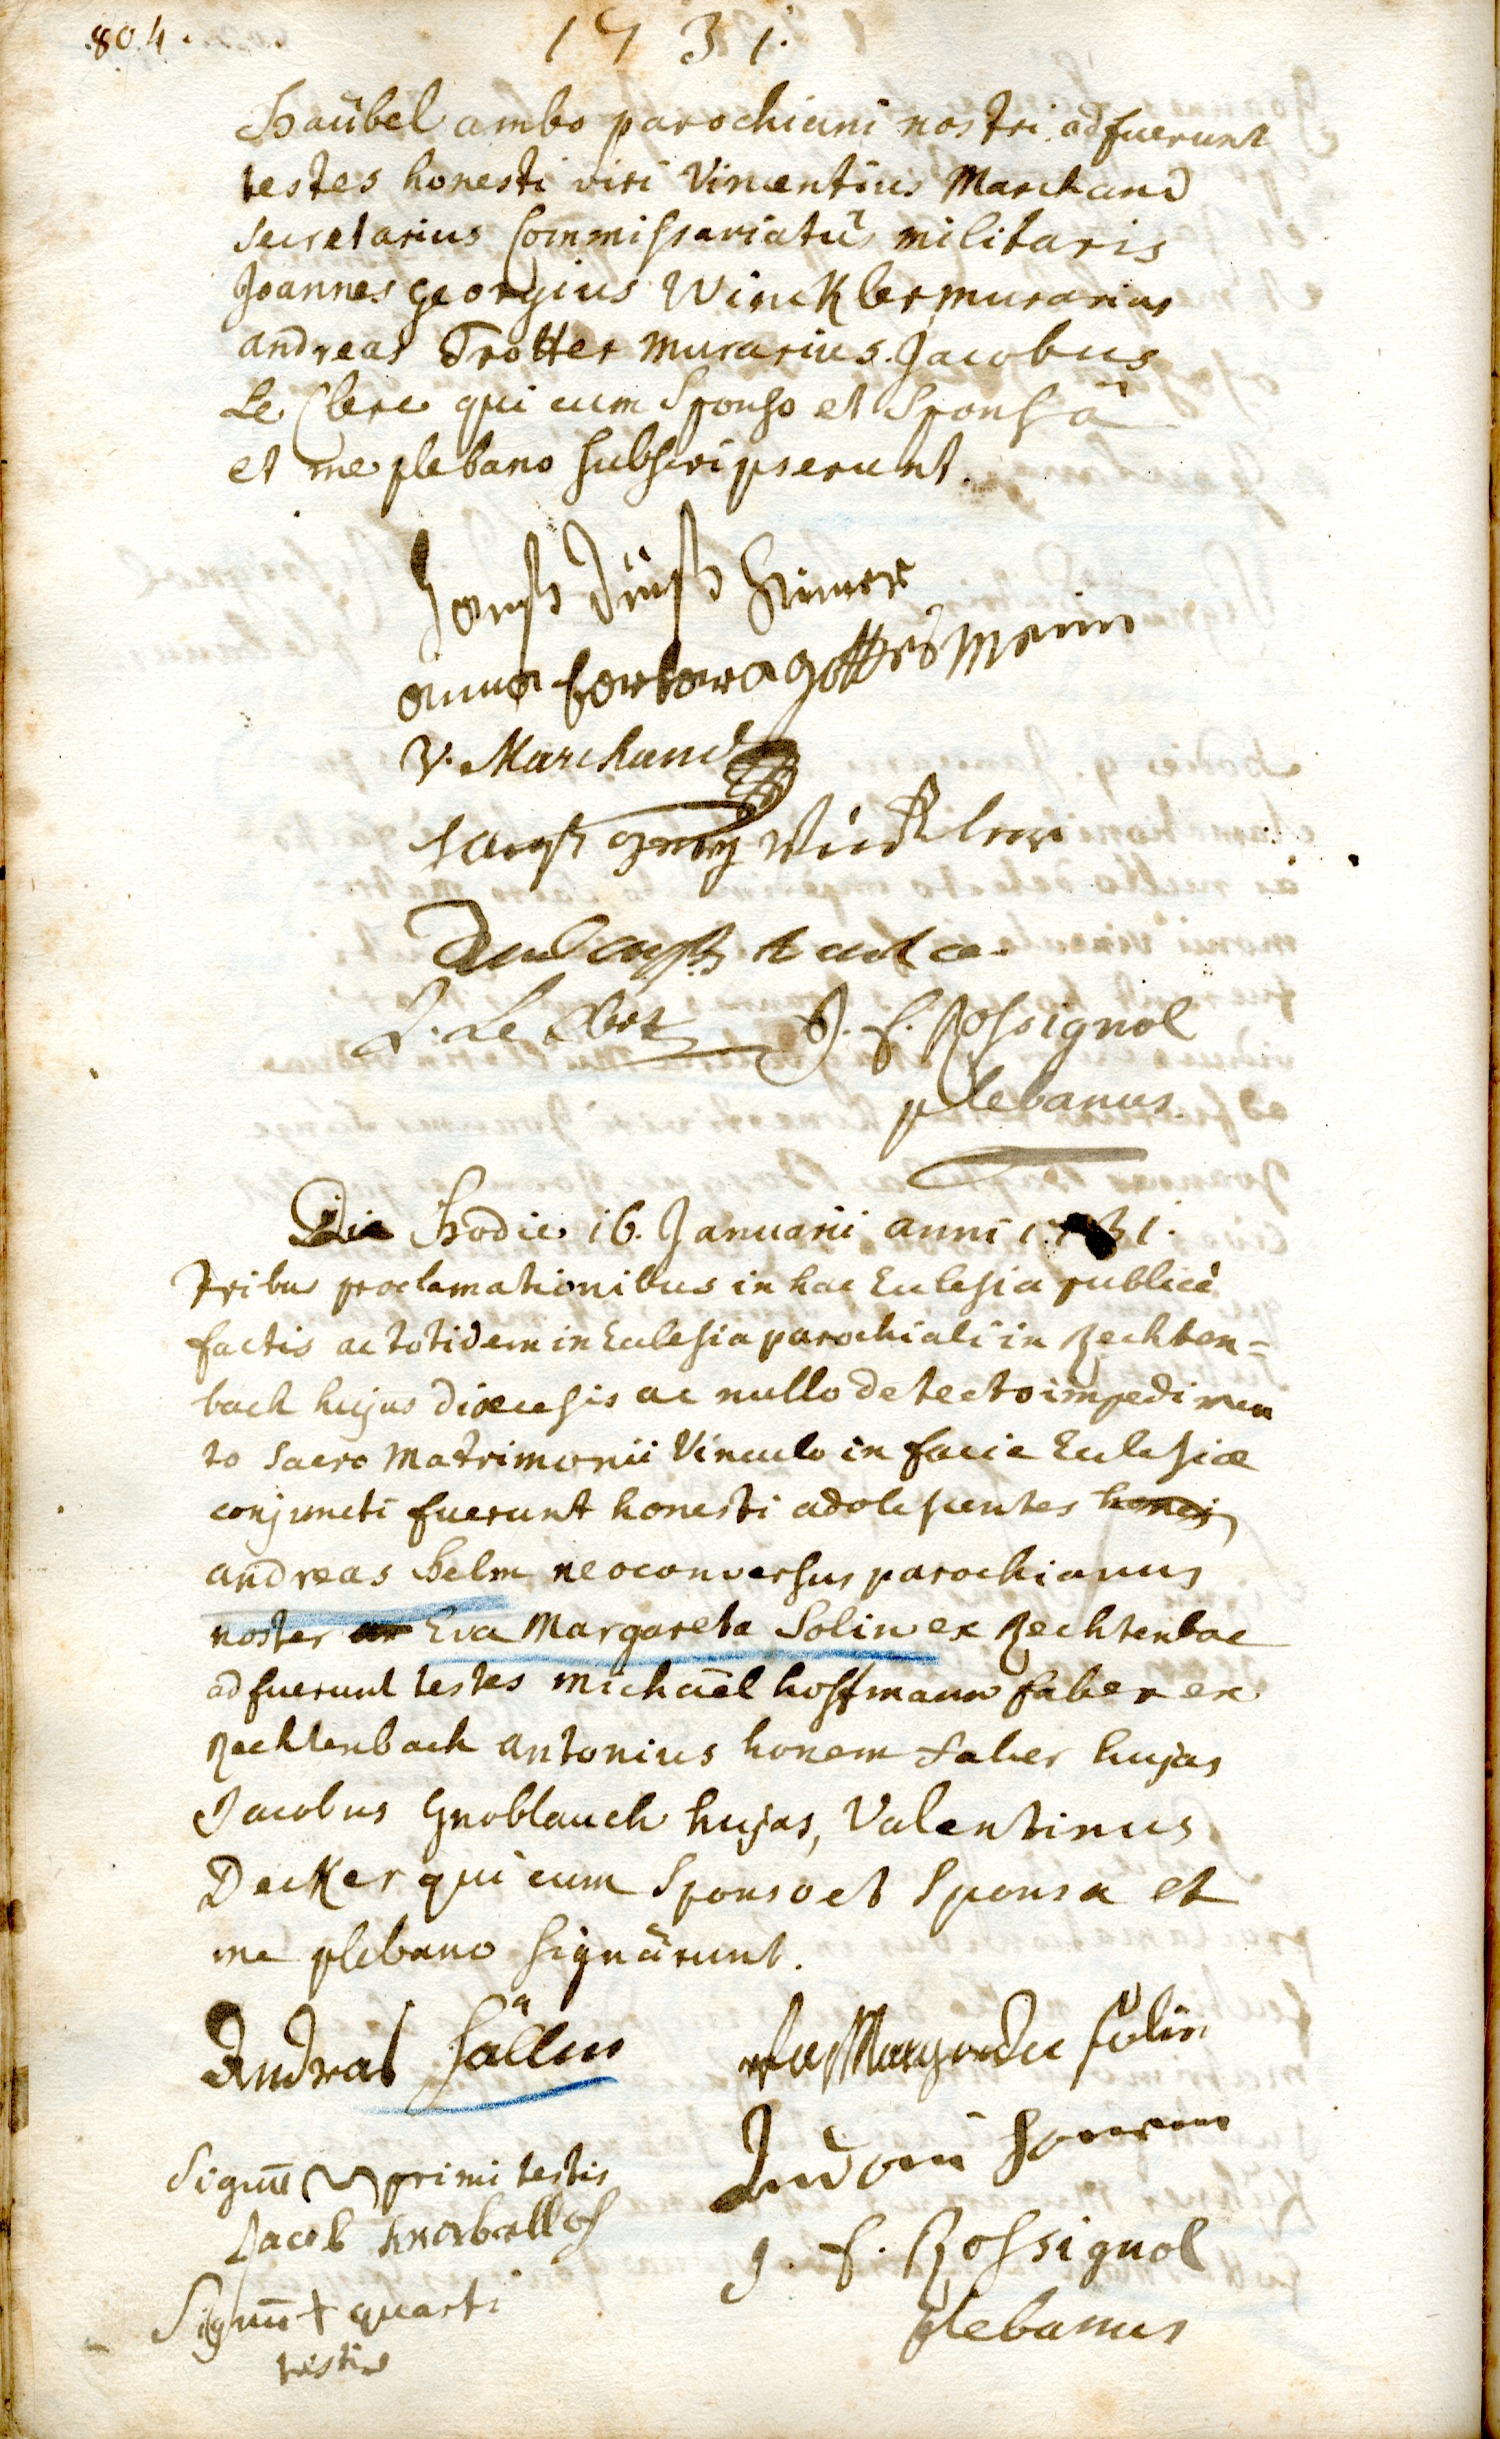 804.
1731.
Haübel ambo parochiani nostri adfuerunt
testes honesti viri Vincentius Marchand
secretarius Commissariatûs militaris
Joannes georgius Winckler murarius
andreas Trotter murarius. Jacobus
Le Clerc qui cum Sponso et Sponsâ
et me plebano subscripserunt.
anna barbara gottesmenin
V. Marchand
Winckler
J. Le Clerc J. f. Rossignol
plebanus.
Die Hodie 16. Januarii anni 1731.
Tribus proclamationibus in hac Ecclesia publicè
factis ac totidem in Ecclesia parochiali in Rechten=
bach hujus dioecesis ac nullo detecto impedimen
to sacro Matrimonii Vinculo in facie Ecclesiæ
conjuncti fuerunt honesti adolescentes
andreas Helm neoconversus parochianus
noster Eva Margareta Solin ex Rechtenbac
adfuerunt testes michaël hoffmann faber ex
Rechtenbach antonius honem faber hujas
Jacobus Gnoblauch hujas, Valentinus
Decker qui cum Sponso et Sponsa et
me plebano signârunt.
Andreas hällm Margreda solin
Signū primi testis
Jacob
J. f. Rossignol
Signū + quarti
plebanus
testis